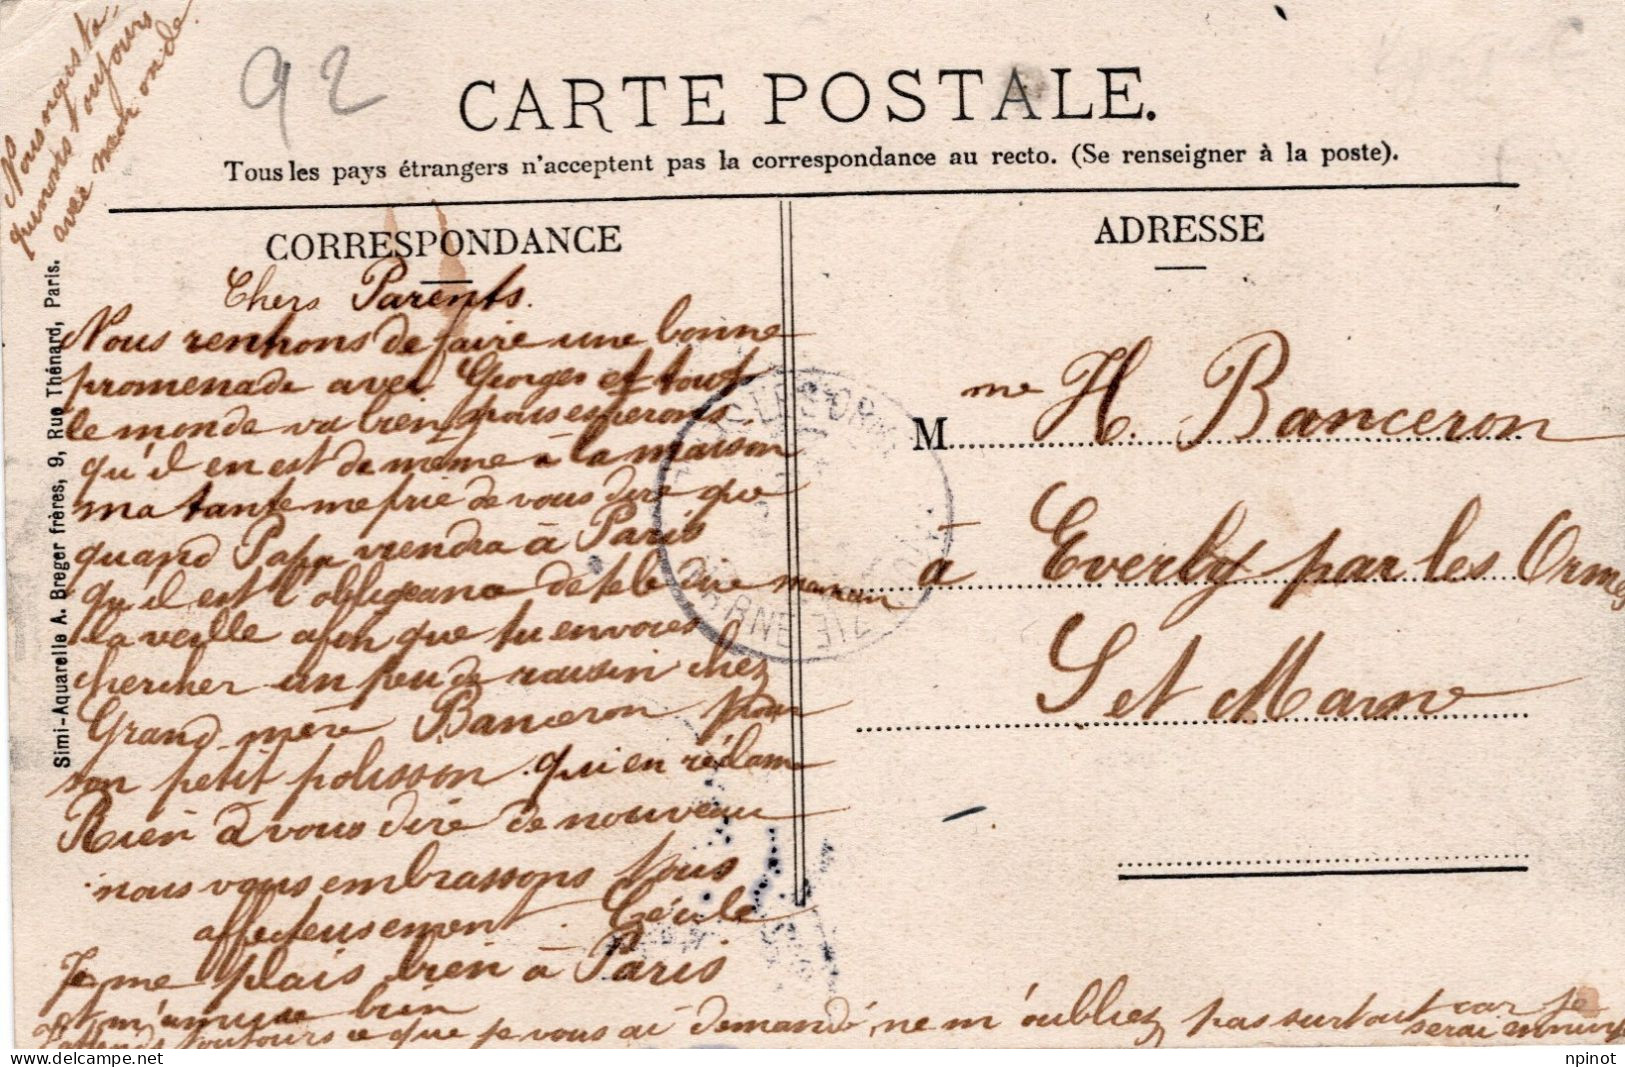 Nous nous ta-
quinons toujours
avec mon oncle.
92
CARTE POSTALE.
Tous les pays étrangers n'acceptent pas la correspondance au recto. (Se renseigner à la poste).
CORRESPONDANCE
Chers Parents.
Nous rentrons de faire une bonne
promenade avec Georges et tout
le monde va bien nous esperons
qu'il en est de même à la maison
ma tante me prie de vous dire que
quand Papa viendra à Paris
qu'il est l'obligeance de le dire maman
la veille afin que tu envoies
chercher un peu de raisin chez
Grand-mère Banceron pour
son petit polisson qui en réclame
Rien à vous dire de nouveau
nous vous embrassons tous
affectueusement. Cécile
Je me plais bien à Paris
et m'amuse bien
J'attends toujours ce que je vous ai demandé, ne m'oubliez pas surtout car je
serai ennuyé
Simi-Aquarelle A. Breger frères, 9, Rue Thénard, Paris.
ADRESSE
M me H. Banceron
à Everly par les Ormes
S et Marne
LES ORMES
MARNE
npinot